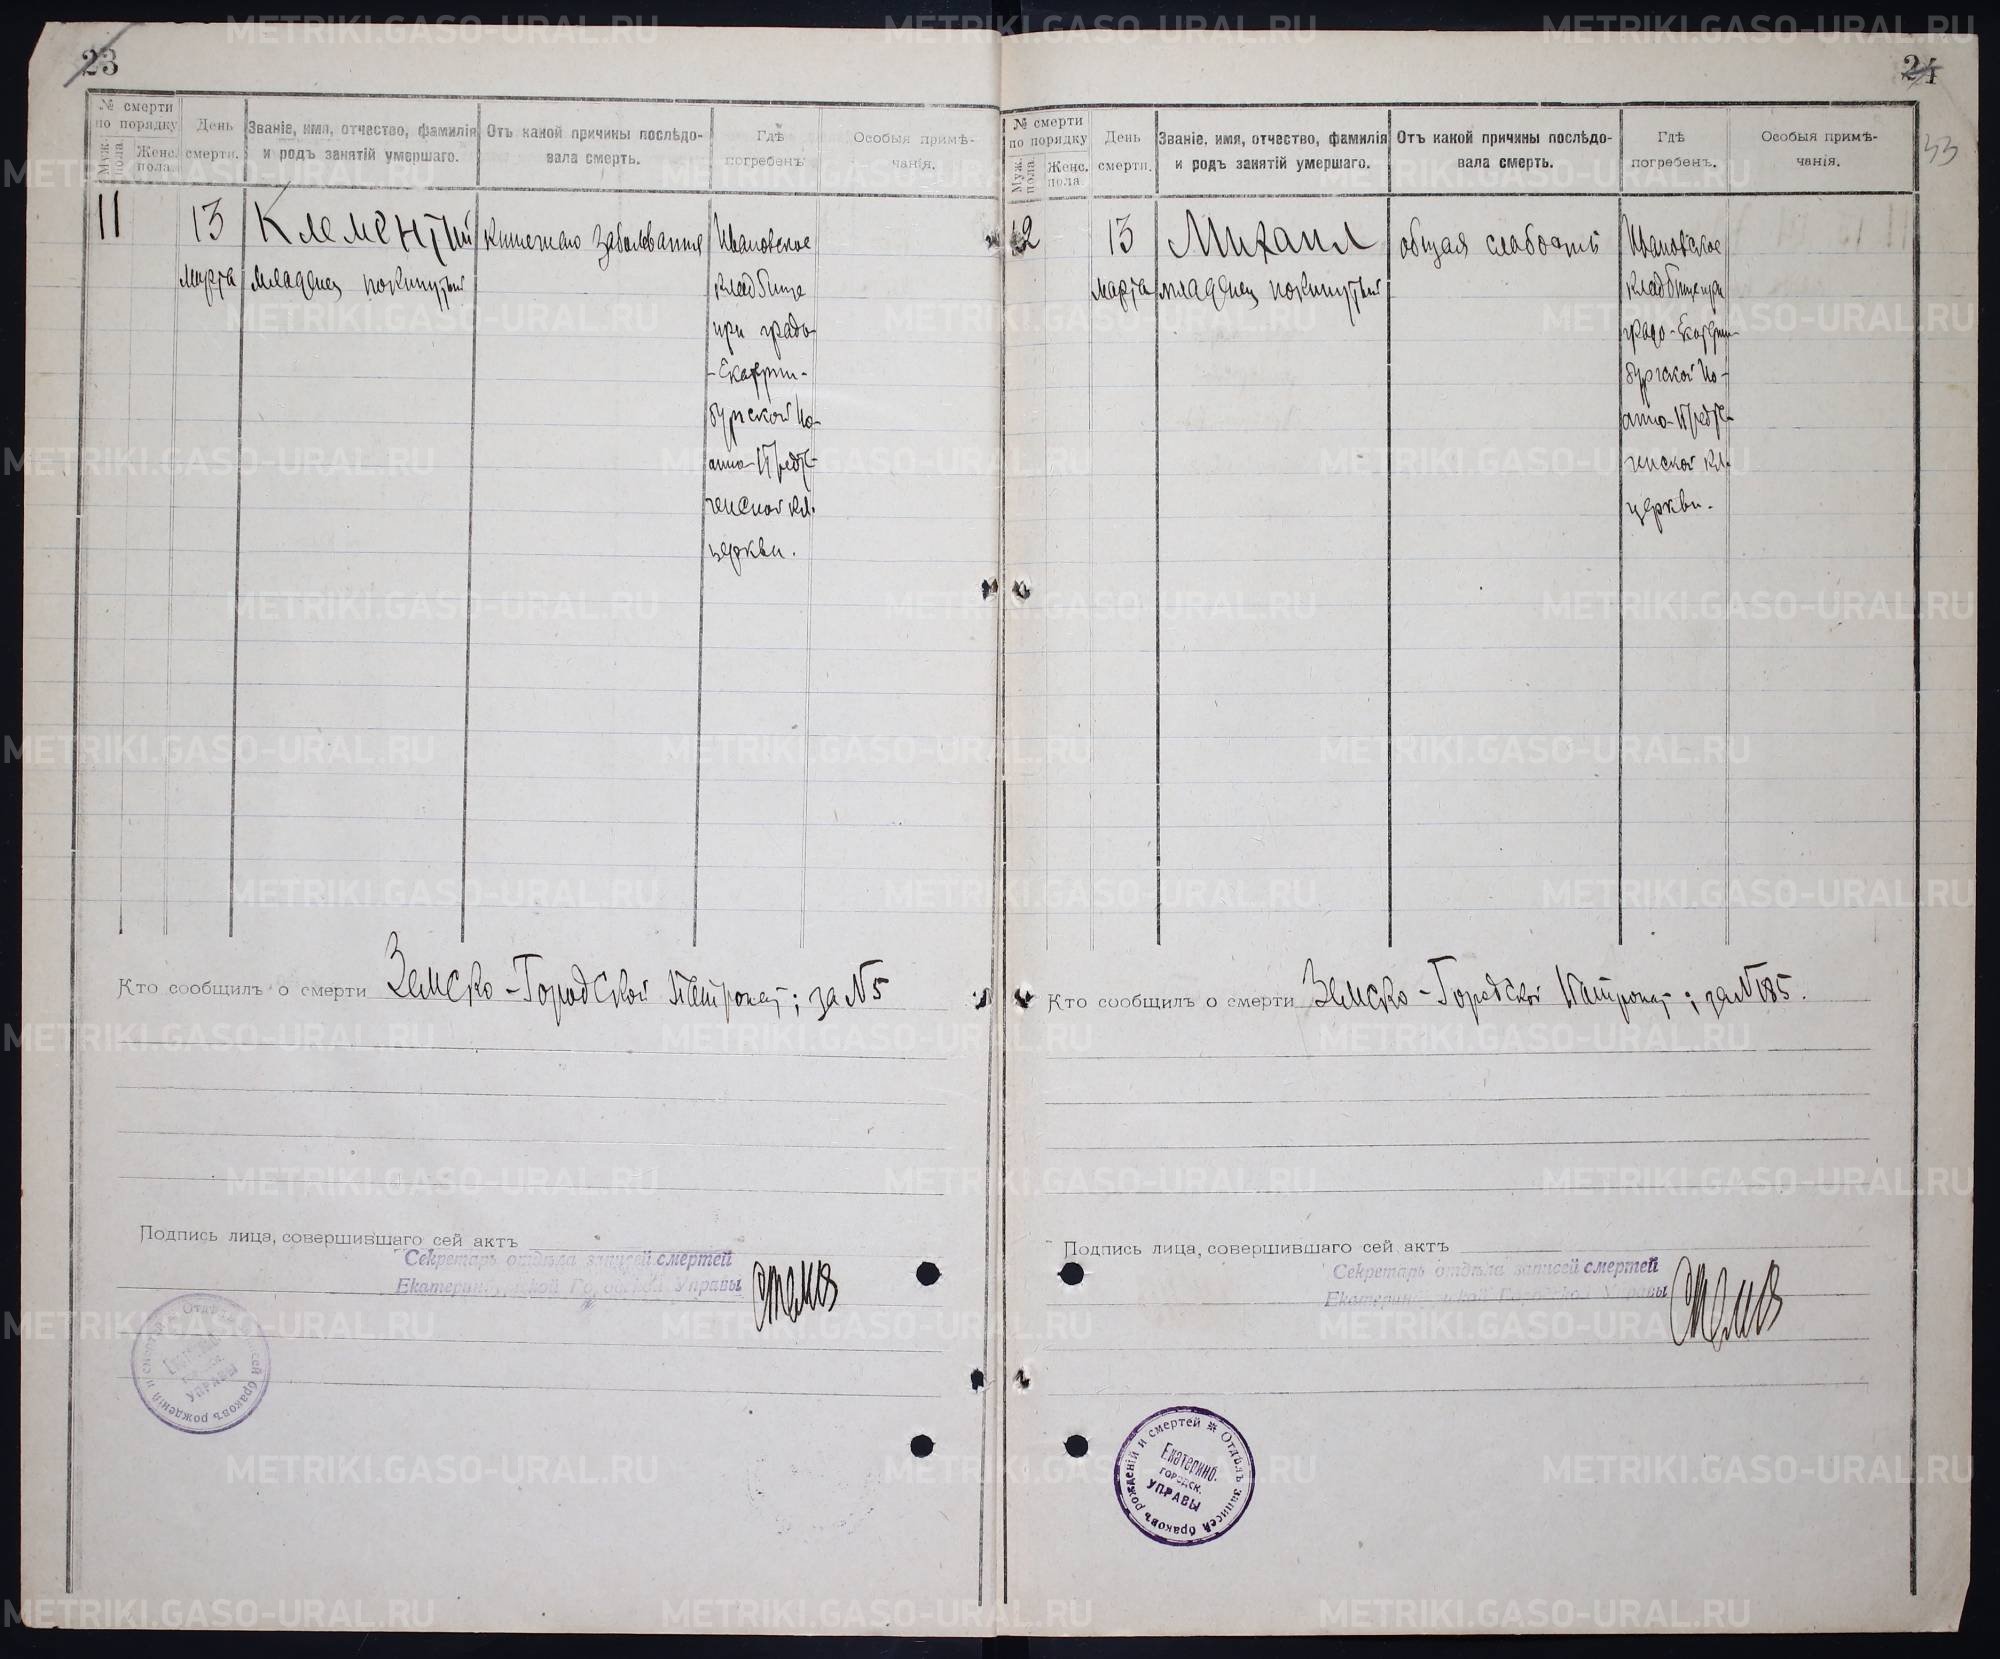 23
№ смерти по порядку
Муж. пола.
Женс. пола.
День смерти.
Званіе, имя, отчество, фамилія и родъ занятій умершаго.
Отъ какой причины послѣдовала смерть.
Гдѣ погребенъ
Особыя примѣчанія.
11
13
Марта
Клементий
младенец покинутый
кишечного заболевания
Ивановское
кладбище
при градо-
-Екатерин-
бургской Ио-
анно-Предте-
ченской кл.
церкви.
Кто сообщилъ о смерти Земско-Городской Патронат; за № 5
Подпись лица, совершившаго сей актъ
Секретарь отдѣла записей смертей
Екатеринбургской Городской Управы
24
33
№ смерти по порядку
Муж. пола.
Женс. пола.
День смерти.
Званіе, имя, отчество, фамилія и родъ занятій умершаго.
Отъ какой причины послѣдовала смерть.
Гдѣ погребенъ.
Особыя примѣчанія.
12
13
Марта
Михаил
младенец покинутый
общая слабость
Ивановское
кладбище при
градо-Екатерин-
бургской Ио-
анно-Предте-
ченской кл.
церкви.
Кто сообщилъ о смерти Земско-Городской Патронат; за № 185.
Подпись лица, совершившаго сей актъ
Секретарь отдѣла записей смертей
Екатеринбургской Городской Управы
Отдѣлъ записей браковъ рожденій и смертей
Екатеринб.
городск.
УПРАВЫ
METRIKI.GASO-URAL.RU